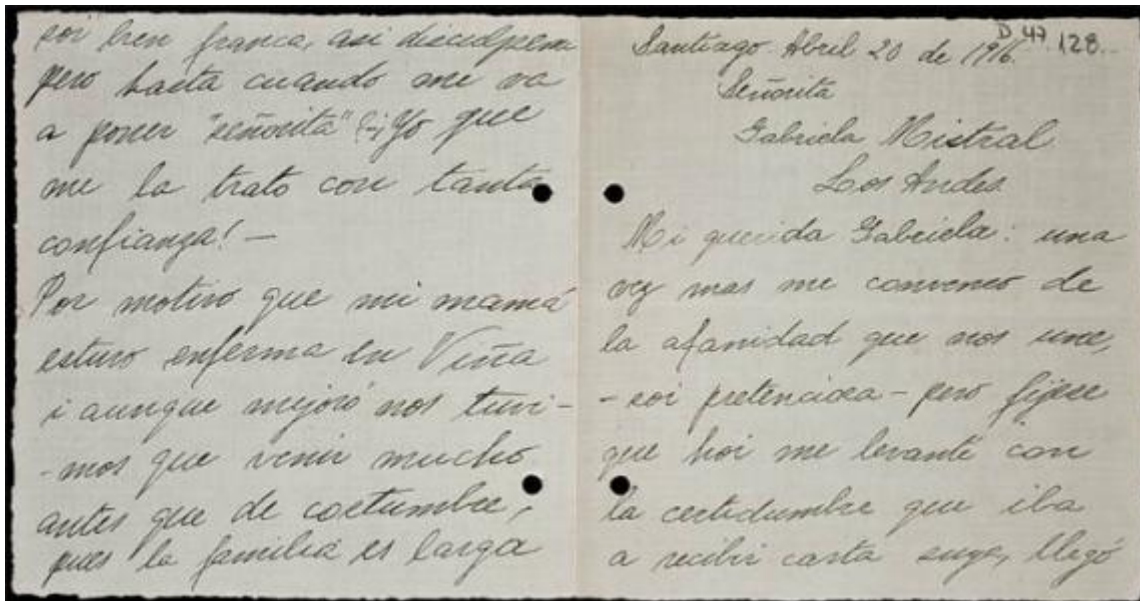 soi bien franca, asi disculpem
pero hasta cuando me va
a poner "señorita" Yo que
me la trato con tanta
confianza! —
Por motivo que mi mamá
estuvo enferma en Viña
i aunque mejoró nos tuvi-
-mos que venir mucho
antes que de costumbre,
pues la familia es larga
D 47 128.
Santiago Abril 20 de 1916.
Señorita
Gabriela Mistral
Los Andes
Mi querida Gabriela: una
vez mas me convenco de
la afanidad que nos une,
- soi pretenciosa - pero fijese
que hoi me levanté con
la certidumbre que iba
a recibir carta suya, llegó